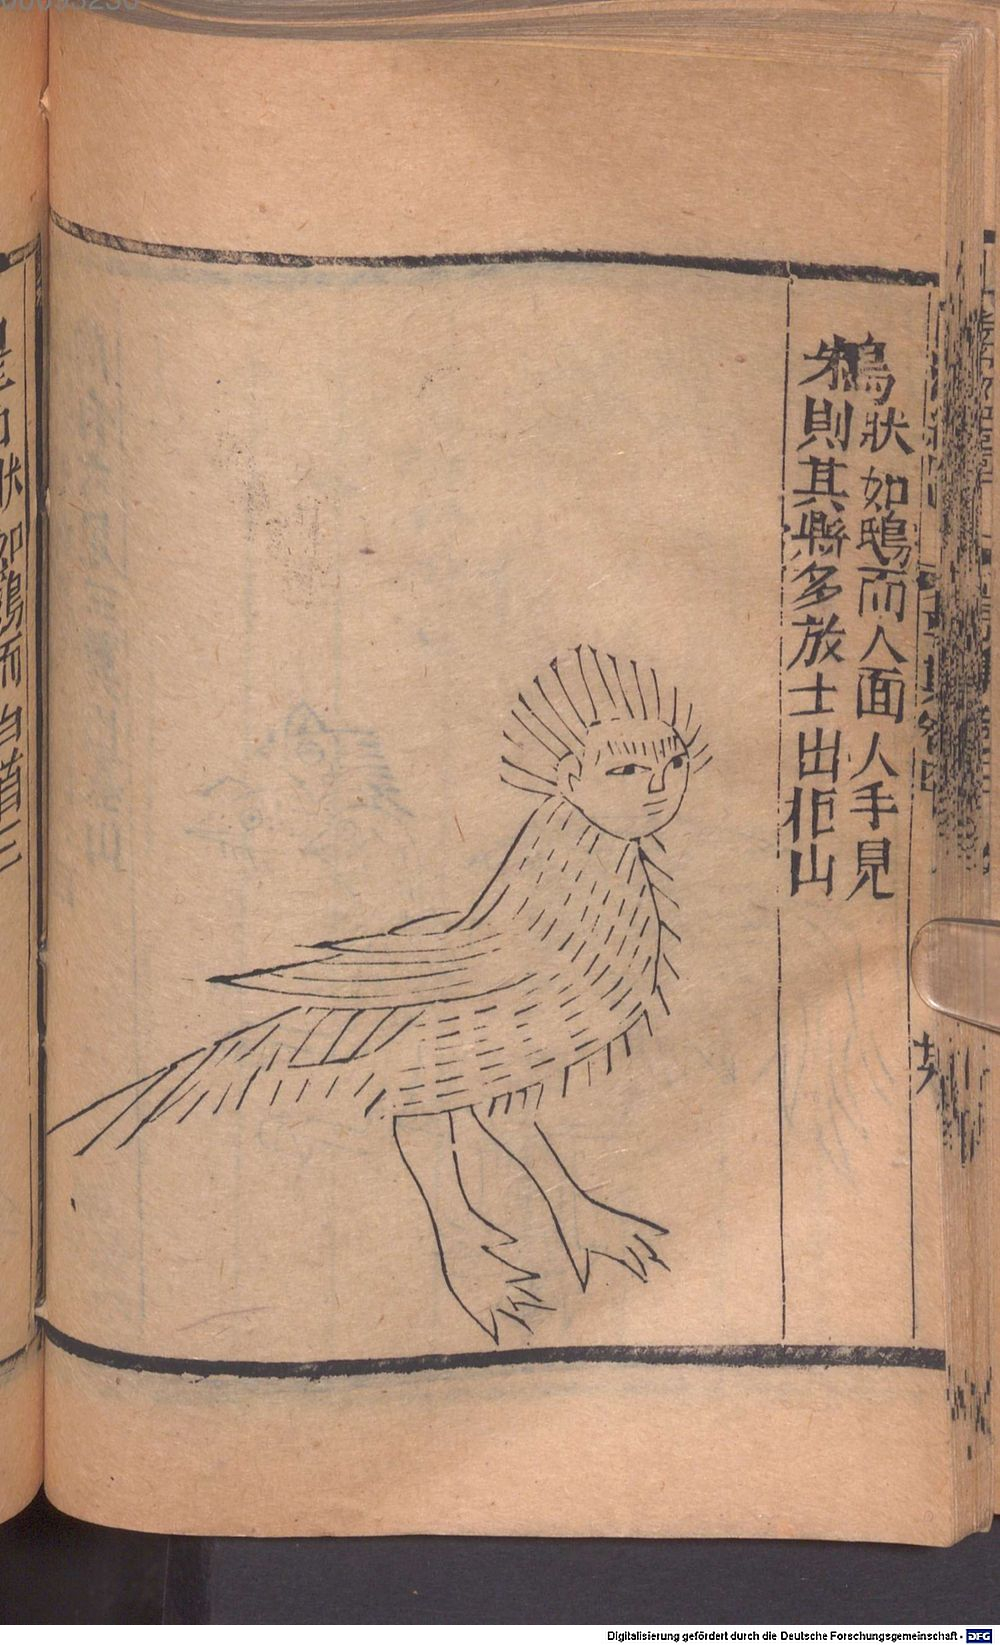 鴸狀如鴟而人面人手見
則其縣多放士出柜山
狀如鶏而白首三
00093250
Digitalisierung gefördert durch die Deutsche Forschungsgemeinschaft - DFG